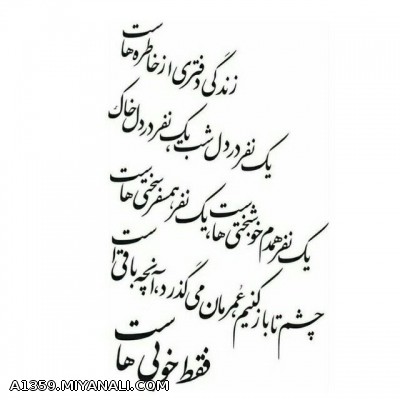 زندگی دفتری از خاطره هاست
یک نفر در دل شب، یک نفر در دل خاک
یک نفر همدم خوشبختی هاست، یک نفر همسفر سختی هاست
چشم تا باز کنیم، عُمرمان می گذرد، آنچه باقی است
فقط خوبی هاست
A1359.MIYANALI.COM